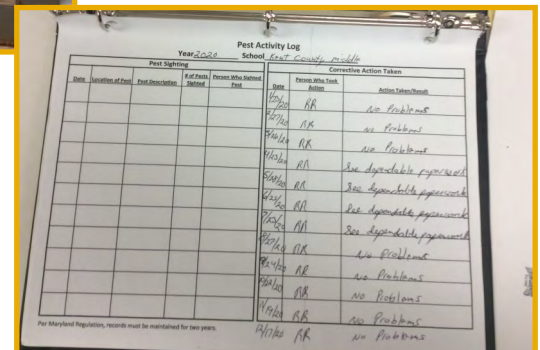 Pest Activity Log
Year 2020 School Kent County middle
Pest Sighting Corrective Action Taken
Date Location of Pest Pest Description # of Pests Sighted Person Who Sighted Pest Date Person Who Took Action Action Taken/Result
RR No Problems
2/27/20 RR No Problems
3/26/20 RR No Problems
4/23/20 RR See dependable paperwork
5/28/20 RR See dependable paperwork
RR See dependable paperwork
RR See dependable paperwork
8/27/20 RR No Problems
9/24/20 RR No Problems
RR No Problems
11/19/20 RR No Problems
12/17/20 RR No Problems
Per Maryland Regulation, records must be maintained for two years.